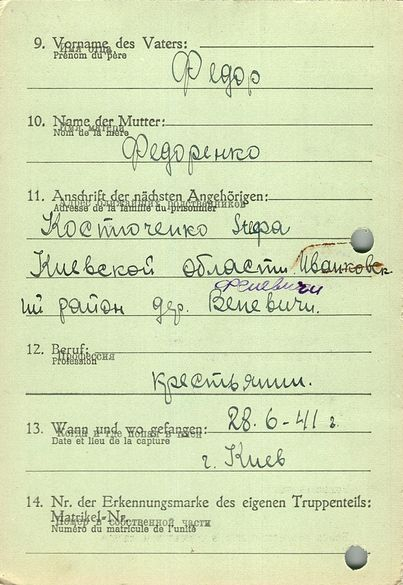 9. Vorname des Vaters:
Имя отца
Prénom du père
Федор
10. Name der Mutter:
Имя матери
Nom de la mère
Федоренко
11. Anschrift der nächsten Angehörigen:
Адрес ближайших родственников
Adresse de la famille du prisonnier
Костюченко Stepa
Киевской области Иванковск
ий район дер. Веневичи.
Феневичи
12. Beruf:
Профессия
Profession
крестьянин.
13. Wann und wo gefangen: 28.6-41 г.
Когда и где попал в плен
Date et lieu de la capture
г. Киев
14. Nr. der Erkennungsmarke des eigenen Truppenteils:
Matrikel-Nr.
Номер в собственной части
Numéro du matricule de l'unité